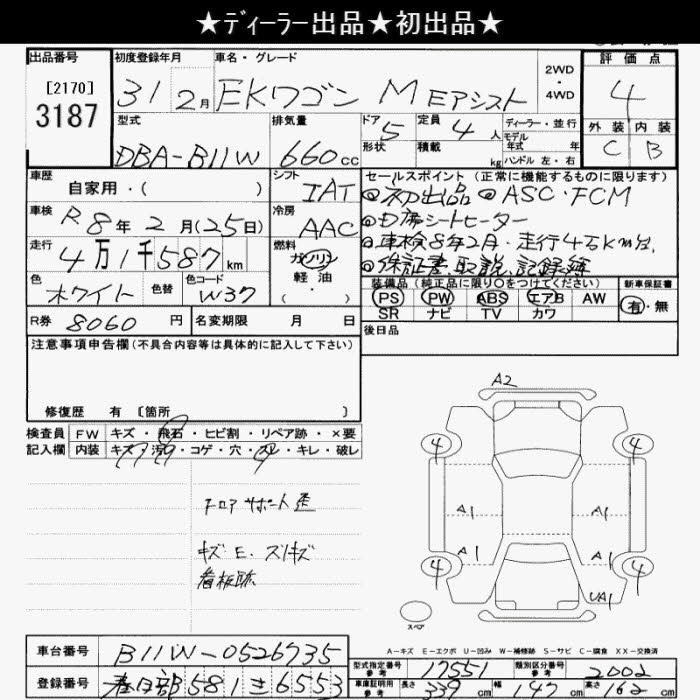 ★ディーラー出品★初出品★
出品番号
[2170]
3187
初度登録年月
31 2月
車名・グレード
EKワゴン M Eアシスト
2WD
4WD
評価点
4
外装 内装
C B
型式
DBA-B11W
排気量
660cc
ドア
5
形状
定員
4人
積載
kg
ディーラー・並行
モデル
年式 年
ハンドル 左・右
車歴
自家用・( )
シフト
IAT
車検
R8年2月(25日)
冷房
AAC
走行
4万1千587km
燃料
ガソリン
軽・油
・( )
色
ホワイト
色替
色コード
W37
セールスポイント(正常に機能するものに限ります)
◎初出品 ◎ASC・FCM
◎D席シートヒーター
◎車検8年2月・走行4万km台
◎保証書、取説、記録簿
装備品(純正品に限り○をつけてください)
PS PW ABS エアB AW
SR ナビ TV カワ
新車保証書
有・無
後日品
R券 8060円
名変期限 月 日
注意事項申告欄(不具合内容等は具体的に記入して下さい)
修復歴 有 [箇所 ]
検査員
記入欄
FW キズ・飛石・ヒビ割・リペア跡・×要
内装 キズ・汚れ・コゲ・穴・スレ・キレ・破レ
フロアサポート歪
キズ E. スリキズ
看板跡
A2
4
4
A1
A1
A1
A1
4
4
UA1
スペア
A-キズ E-エクボ U-凹み W-補修跡 S-サビ C-腐食 XX-交換済
車台番号
B11W-0526735
登録番号
春日部 581 も 6553
型式指定番号
参考
17551
類別区分番号
参考
2002
車庫証明用
参考
長さ 339cm
幅 147cm
高さ 162cm